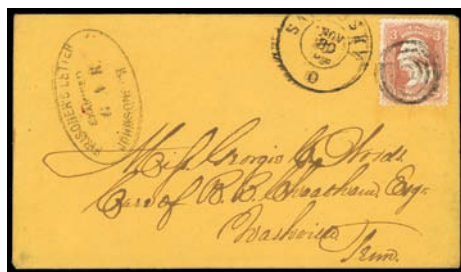 PRISONERS LETTER
EXAMINED
JOHNSON'S IS.
SANDUSKY
O
3
3
Miss Georgie C. Woods
Care of R. B. Cheatham Esqr
Nashville
Tenn.